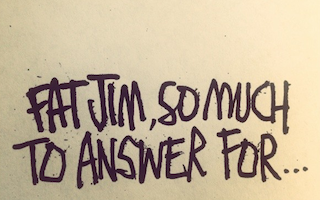 FAT JIM, SO MUCH
TO ANSWER FOR...